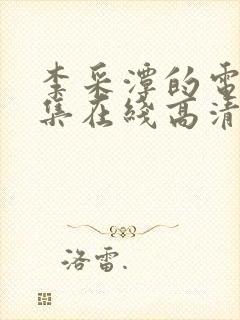 李采潭的電
集在綫高清
洛雷.